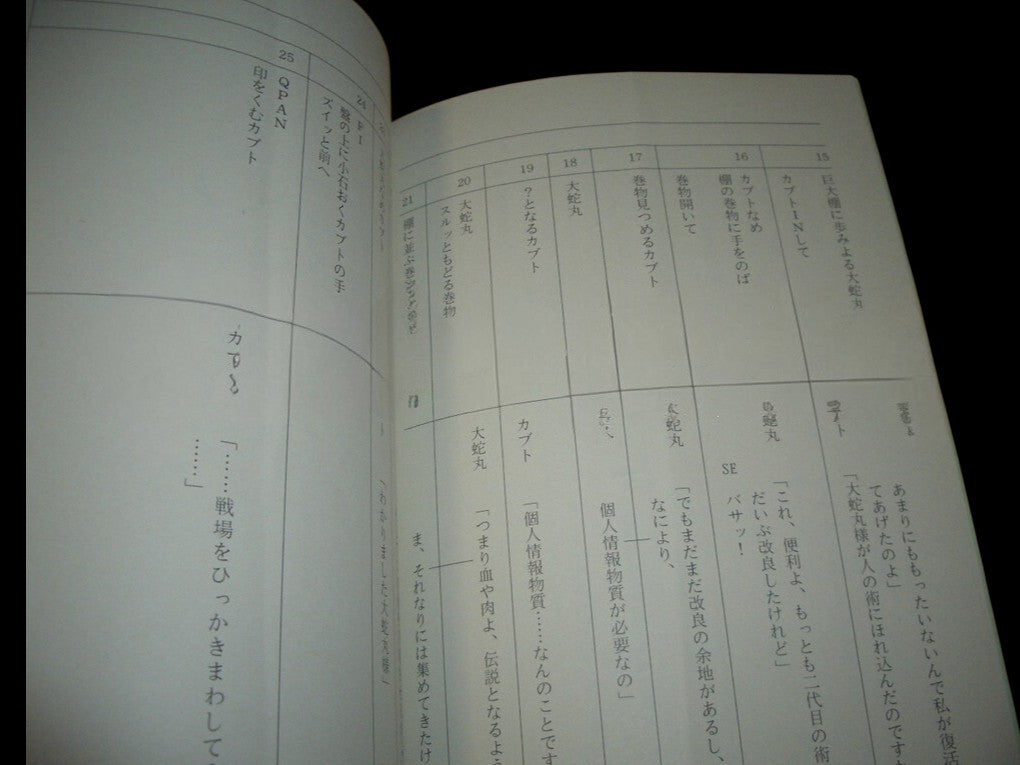 15
巨大棚に歩みよる大蛇丸
カブトINして
あまりにももったいないんで私が復活
てあげたのよ」
「大蛇丸様が人の術にほれ込んだのです
16
カブトなめ
棚の巻物に手をのば
巻物開いて
蛇丸
「これ、便利よ、もっとも二代目の術
だいぶ改良したけれど」
SE
バサッ!
17
巻物見つめるカブト
蛇丸
「でもまだまだ改良の余地があるし、
なにより、
18
大蛇丸
個人情報物質が必要なの」
19
?となるカブト
カブト
「個人情報物質……なんのことです
20
大蛇丸
スルッともどる巻物
大蛇丸
「つまり血や肉よ、伝説となるよう
ま、それなりには集めてきたけ
21
棚に並ぶ巻
「わかりました大蛇丸様」
24
盤の上に小石おくカブトの手
ズイッと前へ
25
QPAN
印をくむカブト
カブ
「……戦場をひっかきまわして
……」